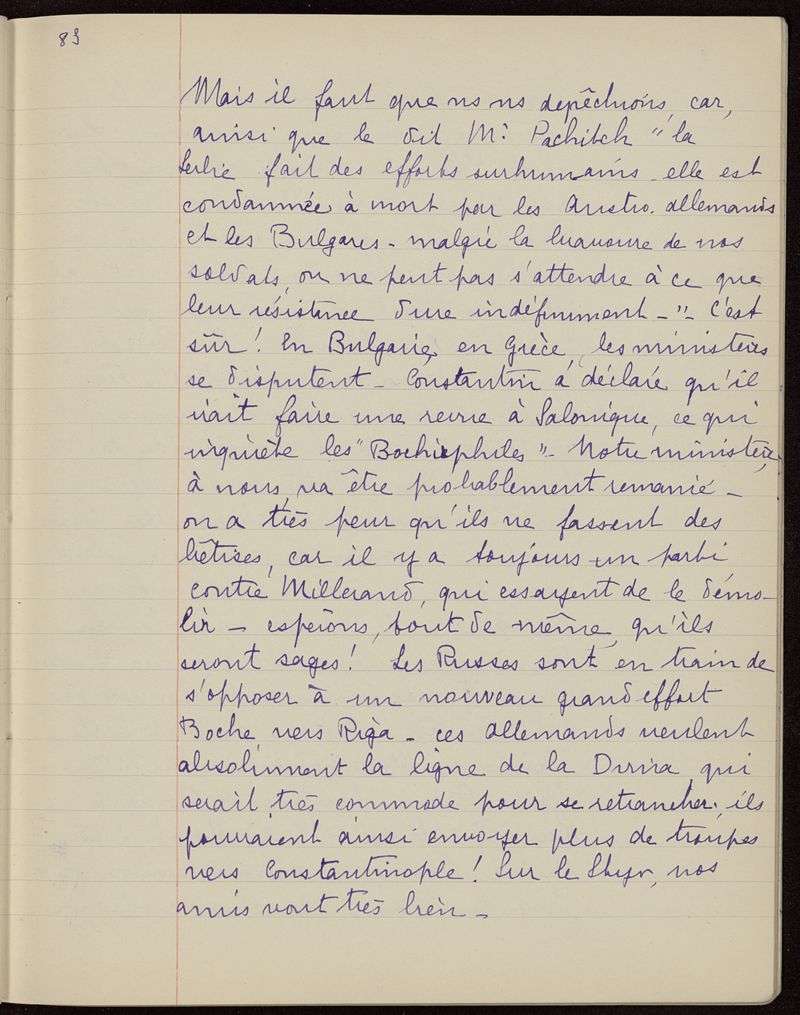 83
Mais il faut que ns ns depêchions, car,
ainsi que le dit Mr Pachitch "la
Serbie fait des efforts surhumains - elle est
condamnée à mort par les Austro-allemands
et les Bulgares - malgré la bravoure de nos
soldats, on ne peut pas s'attendre à ce que
leur résistance dure indéfiniment -" - C'est
sûr! En Bulgarie, en Grèce, les ministères
se disputent - Constantin a déclaré qu'il
irait faire une revue à Salonique, ce qui
inquiète les "Bochephiles" - Notre ministère,
à nous, va être probablement remanié -
on a très peur qu'ils ne fassent des
bêtises, car il y a toujours un parti
contre Millerand, qui essayent de le démo-
lir - espérons, tout de même, qu'ils
seront sages! Les Russes sont en train de
s'opposer à un nouveau grand effort
Boche vers Riga - ces allemands veulent
absolument la ligne de la Dvina, qui
serait très commode pour se retrancher; ils
pourraient ainsi envoyer plus de troupes
vers Constantinople! Sur le Styr, nos
amis vont très bien -